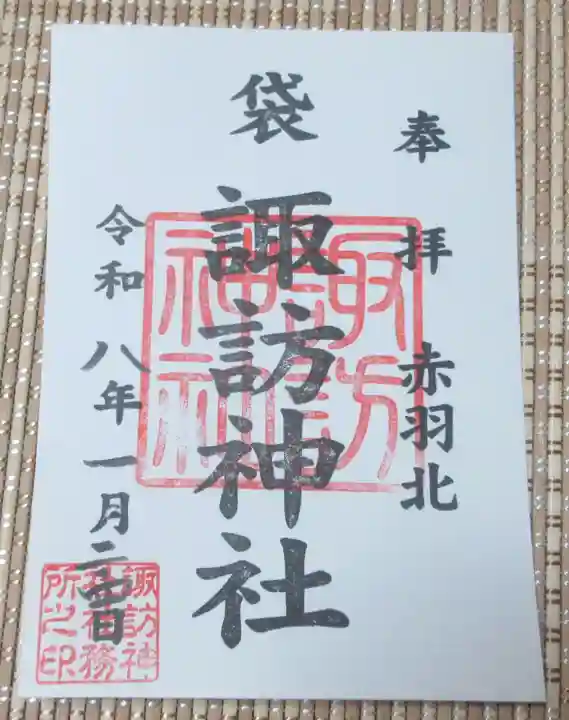 奉拝 赤羽北
袋 諏訪神社
令和八年一月二日
諏訪神社
諏訪神社社務所之印